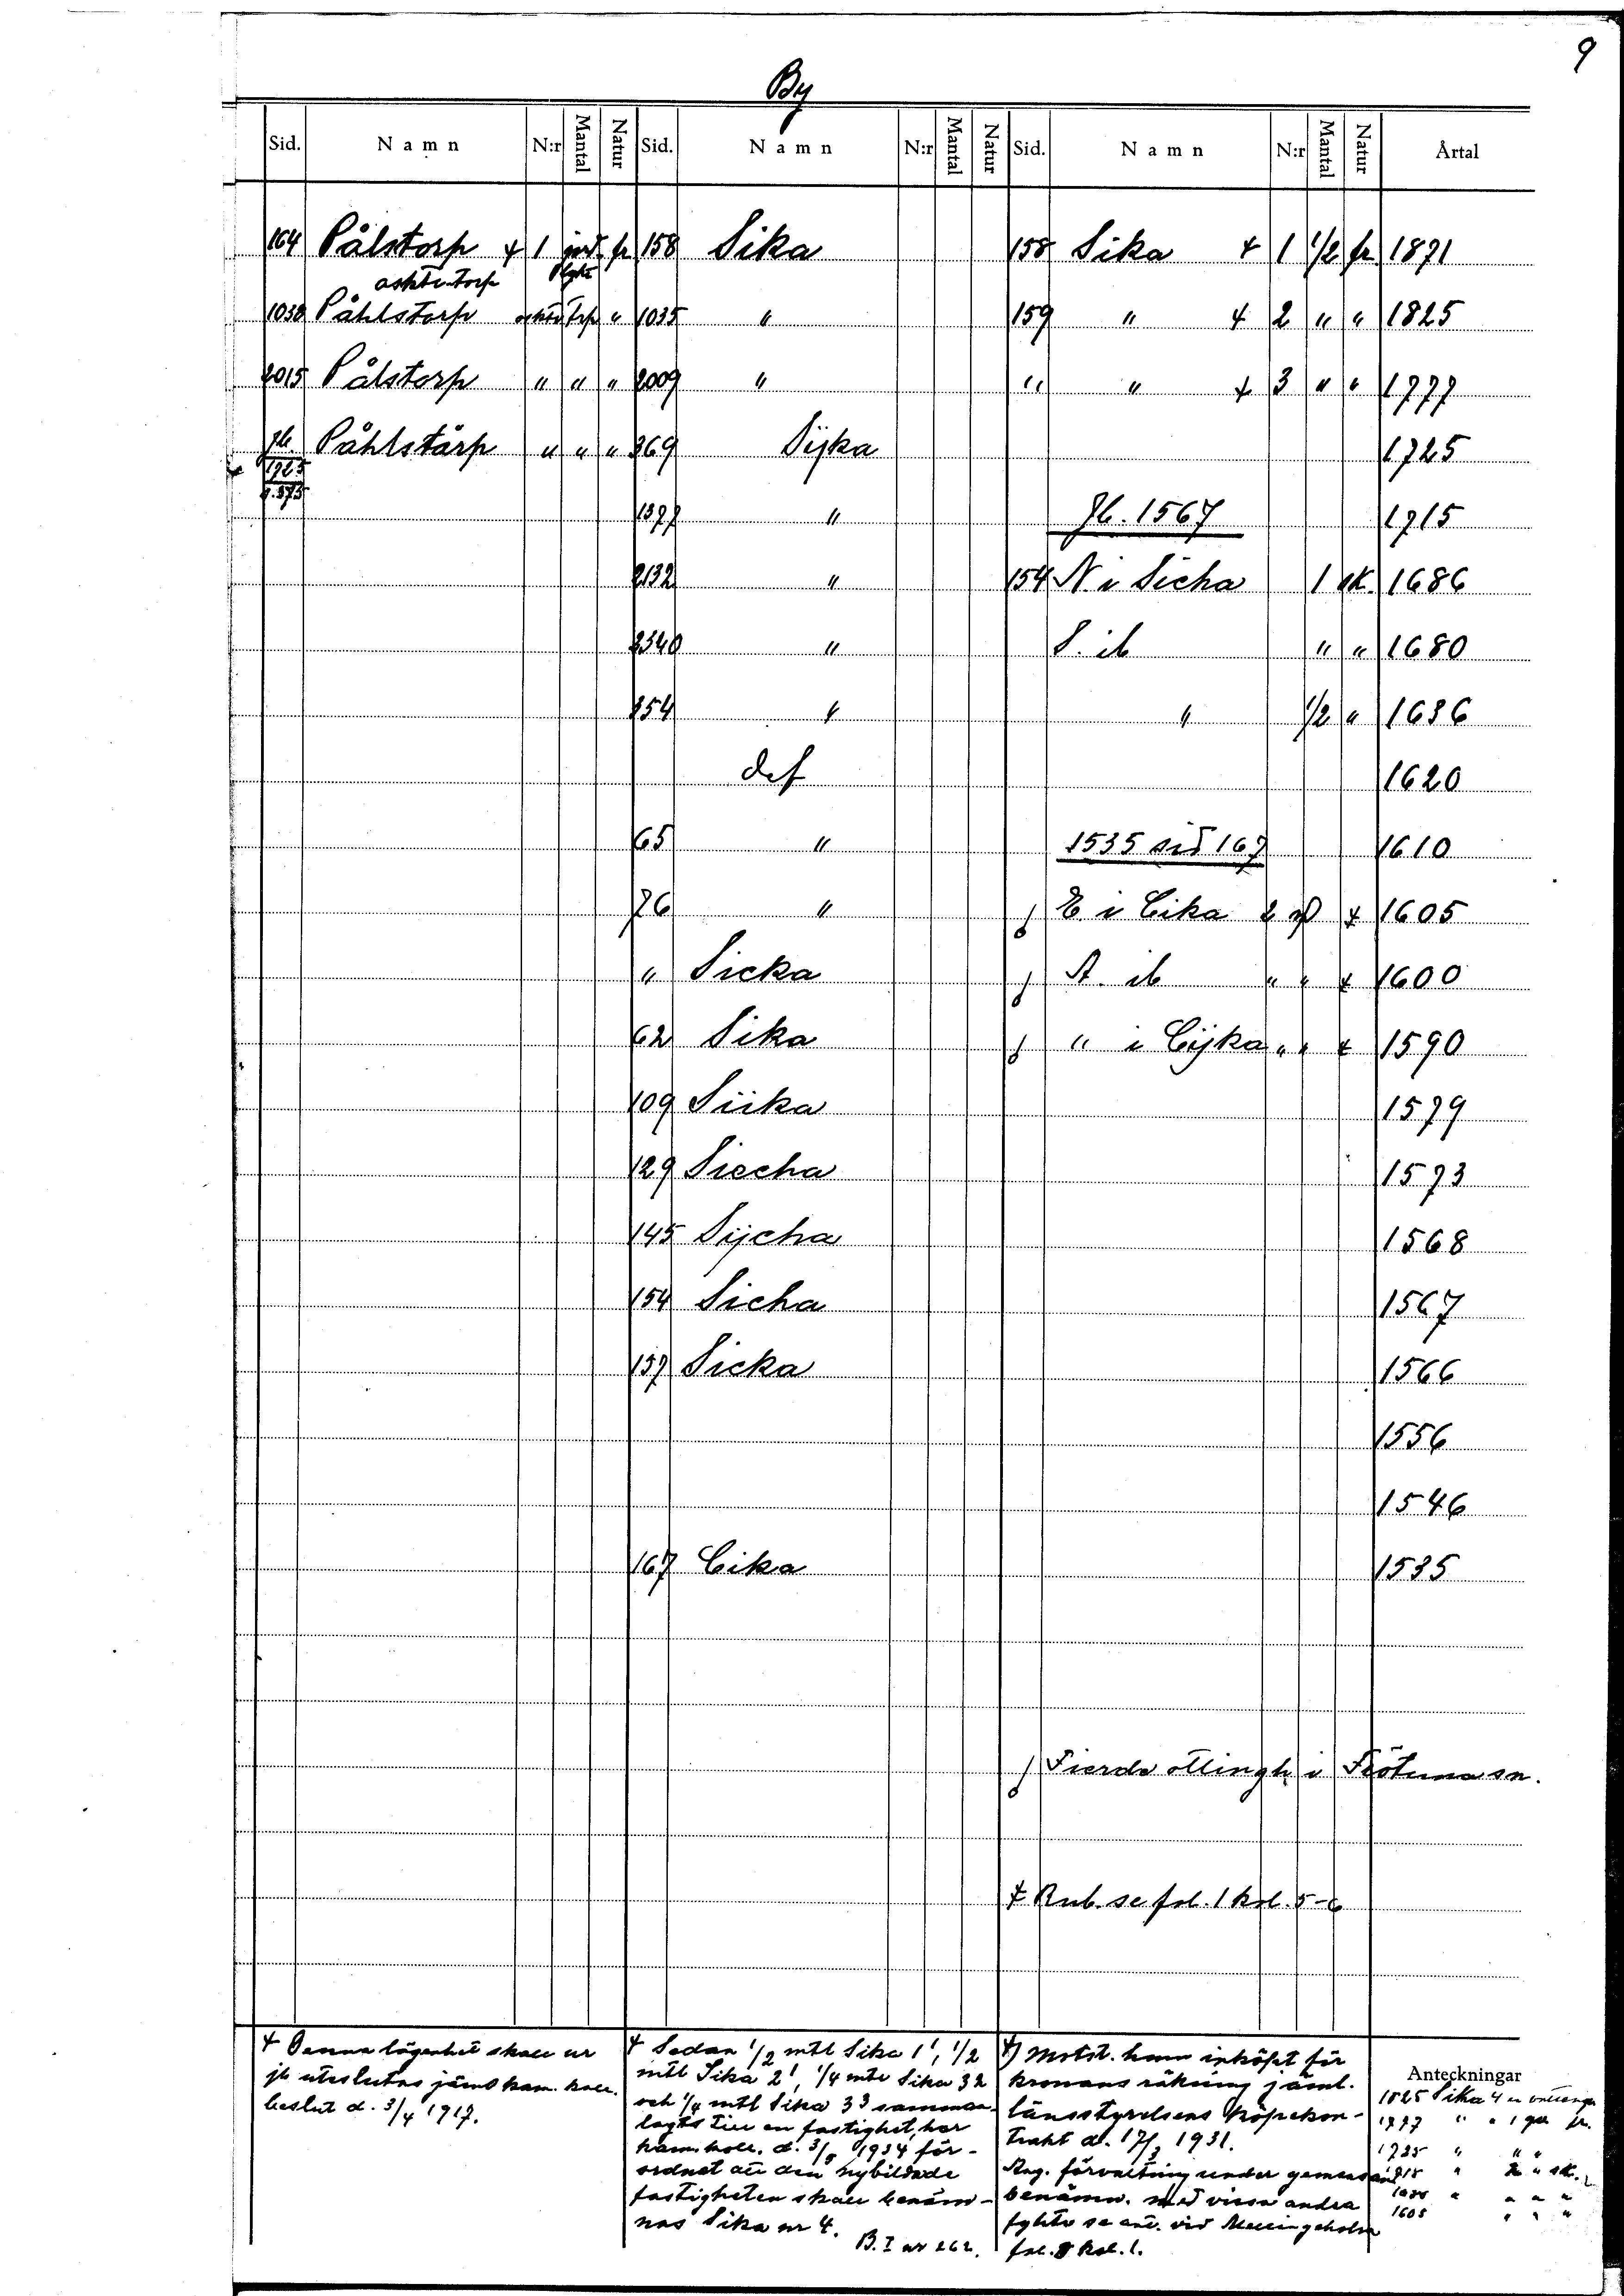 9
By
Sid. Namn N:r Mantal Natur Sid. Namn N:r Mantal Natur Sid. Namn N:r Mantal Natur Årtal
164 Pålstorp + 1 jord fr 158 Sika 158 Sika + 1 1/2 fr 1871
1038 Påhlstorp " 1035 " 159 " + 2 " " 1825
2015 Pålstorp " " " 2009 " " " + 3 " " 1777
Jb. Påhlstårp " " " 369 Sijka 1725
1725
1377 " Jb. 1567 1715
2132 " 154 N i Sicha 1 sk. 1686
2340 " S. ib " " 1680
854 " " 1/2 " 1636
def 1620
65 " 1535 sid 167 1610
76 " E i Cika 2 + 1605
" Sicka A. ib " " + 1600
62 Sika " i Cijka " " + 1590
109 Siika 1579
129 Siecha 1573
145 Sijcha 1568
154 Sicha 1567
157 Sicka 1566
1556
1546
167 Cika 1535
Fierde ottingh i Frötuna sn.
+ Rub. se fol. 1 kol. 5-6
+ Denna lägenhet skall ur
jb uteslutas jäml kam. koll.
beslut d. 3/4 1917.
+ Sedan 1/2 mtl Sika 1¹, 1/2
mtl Sika 2¹, 1/4 mtl Sika 3²
och 1/4 mtl Sika 3³ samman-
lagts till en fastighet, har
kam. koll. d. 3/5 1934 för-
ordnat att den nybildade
fastigheten skall benäm-
nas Sika nr 4.
B. I nr 262.
+) Motst. hem inköpt för
kronans räkning jäml.
länsstyrelsens köpekon-
trakt d. 17/3 1931.
Ang. förvaltning under gemensam
benämn. med vissa andra
fghtr se ant. vid
fol. 8 kol. 1.
Anteckningar
1825 Sika 4
1777 " " 1
1725 " " "
1715 " 2 " sk.
" " " "
1605 " " "